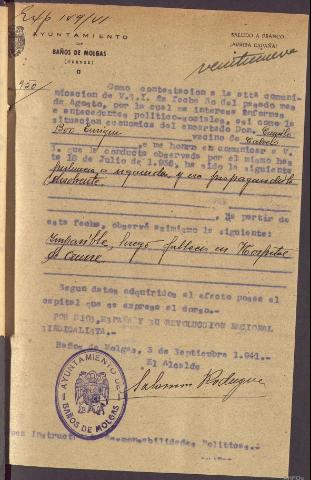 Exp 109/41
AYUNTAMIENTO
DE
BAÑOS DE MOLGAS
(ORENSE)
SALUDO A FRANCO
¡ARRIBA ESPAÑA!
veintinueve
920
Como contestación a la atta comuni-
cación de V.S.I. de fecha 30 del pasado mes
de Agosto, por la cual me interesa informe
e antecedentes político-sociales, así como la
situación económica del encartado Don.
Boo Enrique vecino de
me honro en comunicar a V.
I. que la conducta observada por el mismo has
ta 18 de Julio de 1.936, ha sido la siguiente
pertenecía a izquierdas y era propagandista
A partir de
esta fecha, observó asimismo la siguiente:
Impasible, luego falleció en Hospital
de
Según datos adquiridos al efecto posee el
capital que se expresa al dorso.-
POR DIOS, ESPAÑA Y SU REVOLUCION NACIONAL
SINDICALISTA.-
Baños de Molgas, 3 de Septiembre 1.941.-
El Alcalde
AYUNTAMIENTO DE
BAÑOS DE MOLGAS
Salomón Rodríguez
Juez Instructor Responsabilidades Políticas.-